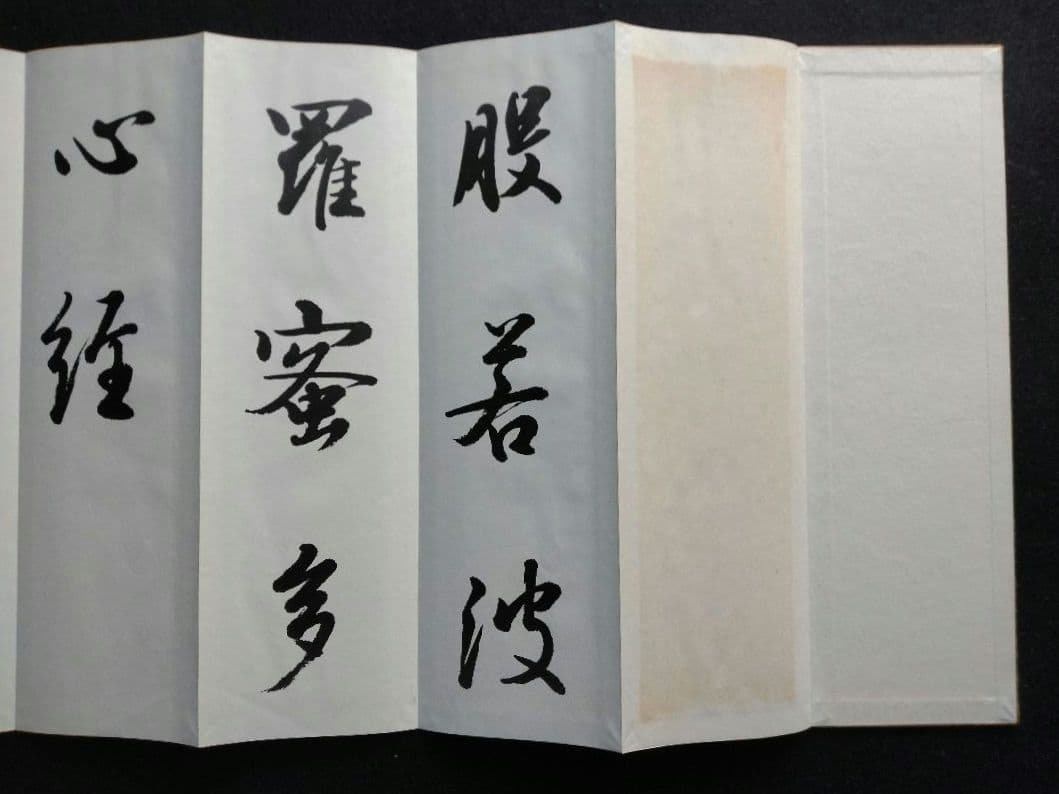 般若波
羅蜜多
心経